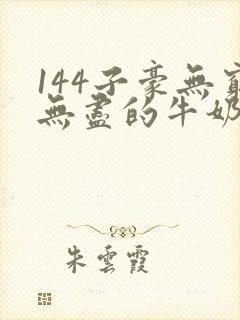 144子豪無窮
無盡的牛奶
朱雲霞